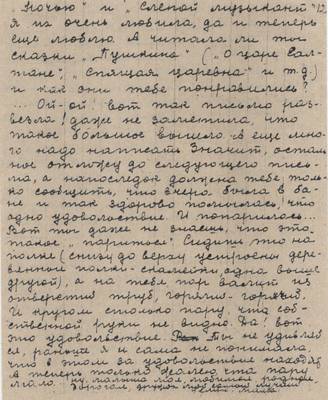 Ночью" и "Слепой музыкант"
я их очень любила, да и теперь
еще люблю. А читала ли ты
сказки "Пушкина" ("О царе Сал-
тане", "Спящая царевна" и т.д.)
и как они тебе понравились?
... Ой-ой! вот так письмо раз-
везла! даже не заметила, что
такое большое вышло. А еще мно-
го надо написать. Значит, осталь-
ное отложу до следующего пись-
ма, а напоследок должна тебе толь-
ко сообщить, что вчера была в ба-
не и так здорово помылась, что
одно удовольствие. И попарилась...
Вот ты даже не знаешь, что это
такое "париться". Сидишь это на
полке (снизу до верху устроены дере-
венной полки-скамейки, одна выше
другой), а на тебя пар валит из
отверстия труб, горячий-горячий.
И кругом столько пару, что соб-
ственной руки не видно. Да! вот
это удовольствие. Ты не удивляй-
ся, раньше я и сама не понимала,
что в этом за удовольствие находят
а теперь только жалею, что пару
мало. Ну, милая моя, любимые родные,